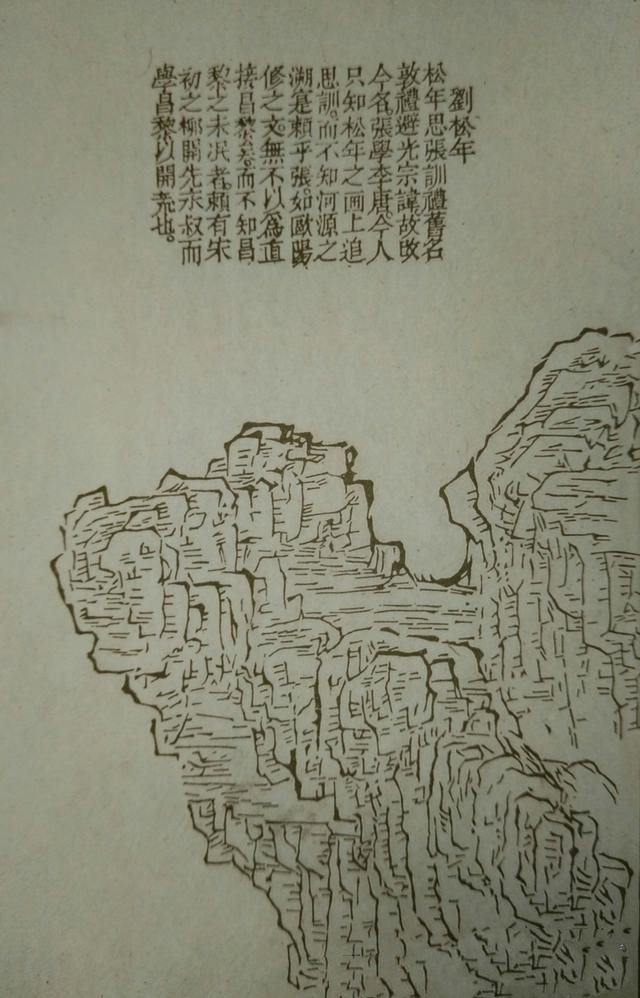 劉松年
松年思張訓禮舊名
敦禮避光宗諱故改
今名。張學李唐。今人
只知松年之画上追
思訓。而不知河源之
溯寔賴乎張。如歐陽
修之文。無不以爲直
接昌黎者。而不知昌
黎之未泯者。賴有宋
初之柳開先永叔而
學昌黎以開也。